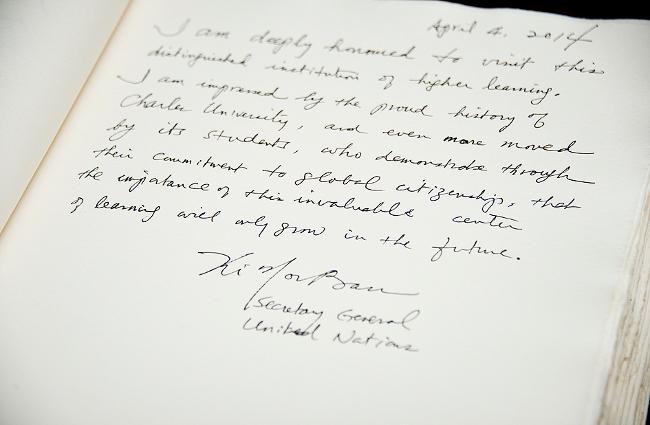 April 4. 2014
I am deeply honoured to visit this
distinguished institution of higher learning.
I am impressed by the proud history of
Charles University, and even more moved
by its students, who demonstrate through
their commitment to global citizenship, that
the importance of this invaluable center
of learning will only grow in the future.
Ki Moon Ban
Secretary General
United Nations